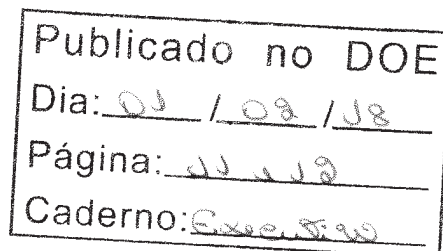 Publicado no DOE
Dia: 01 / 02 / 18
Página: 11 e 12
Caderno: Executivo